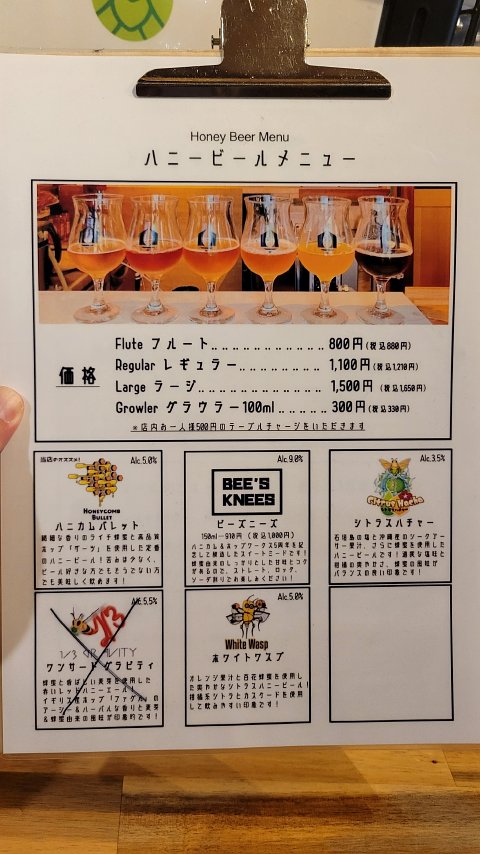 Honey Beer Menu
ハニービールメニュー
価格
Flute フルート 800円(税込880円)
Regular レギュラー 1,100円(税込1,210円)
Large ラージ 1,500円 (税込1,650円)
Growler グラウラー100ml 300円(税込330円)
※店内お一人様500円のテーブルチャージをいただきます
当店オススメ! Alc.5.0%
HONEYCOMB
BULLET
ハニカムバレット
繊細な香りのライチ蜂蜜と高品質
ホップ「ザーツ」を使用した定番
のハニービール!苦みは少なく、
ビール好きな方でもそうでない方
でも美味しく飲めます!
Alc.9.0%
BEE'S
KNEES
ビーズニーズ
150ml—910円 (税込1,000円)
ハニカム&ホップワークス5周年を記
念して醸造したスイートミードです!
蜂蜜由来のしっかりとした甘味とコク
があるので、ストレート、ロック、
ソーダ割りでお楽しみください!
Alc.3.5%
シトラスハチャー
石垣島の塩と沖縄産のシークアー
サー果汁、さらに蜂蜜を使用した
ハニービールです!適度な塩味と
柑橘の爽やかさ、蜂蜜の風味が
バランスの良い印象です!
Alc.5.5%
1/3
1/3 GRAVITY
ワンサードグラビティ
蜂蜜と香ばしい麦芽を使用した
赤いレッドハニーエール!
イギリス産ホップ「ファグル」の
アーシー&ハーバルな香りと麦芽
&蜂蜜由来の風味が印象的です!
Alc.5.0%
White Wasp
ホワイトワスプ
オレンジ果汁と百花蜂蜜を使用し
た爽やかなシトラスハニービール!
柑橘系シトラとカスケードを使用
して飲みやすい印象です!